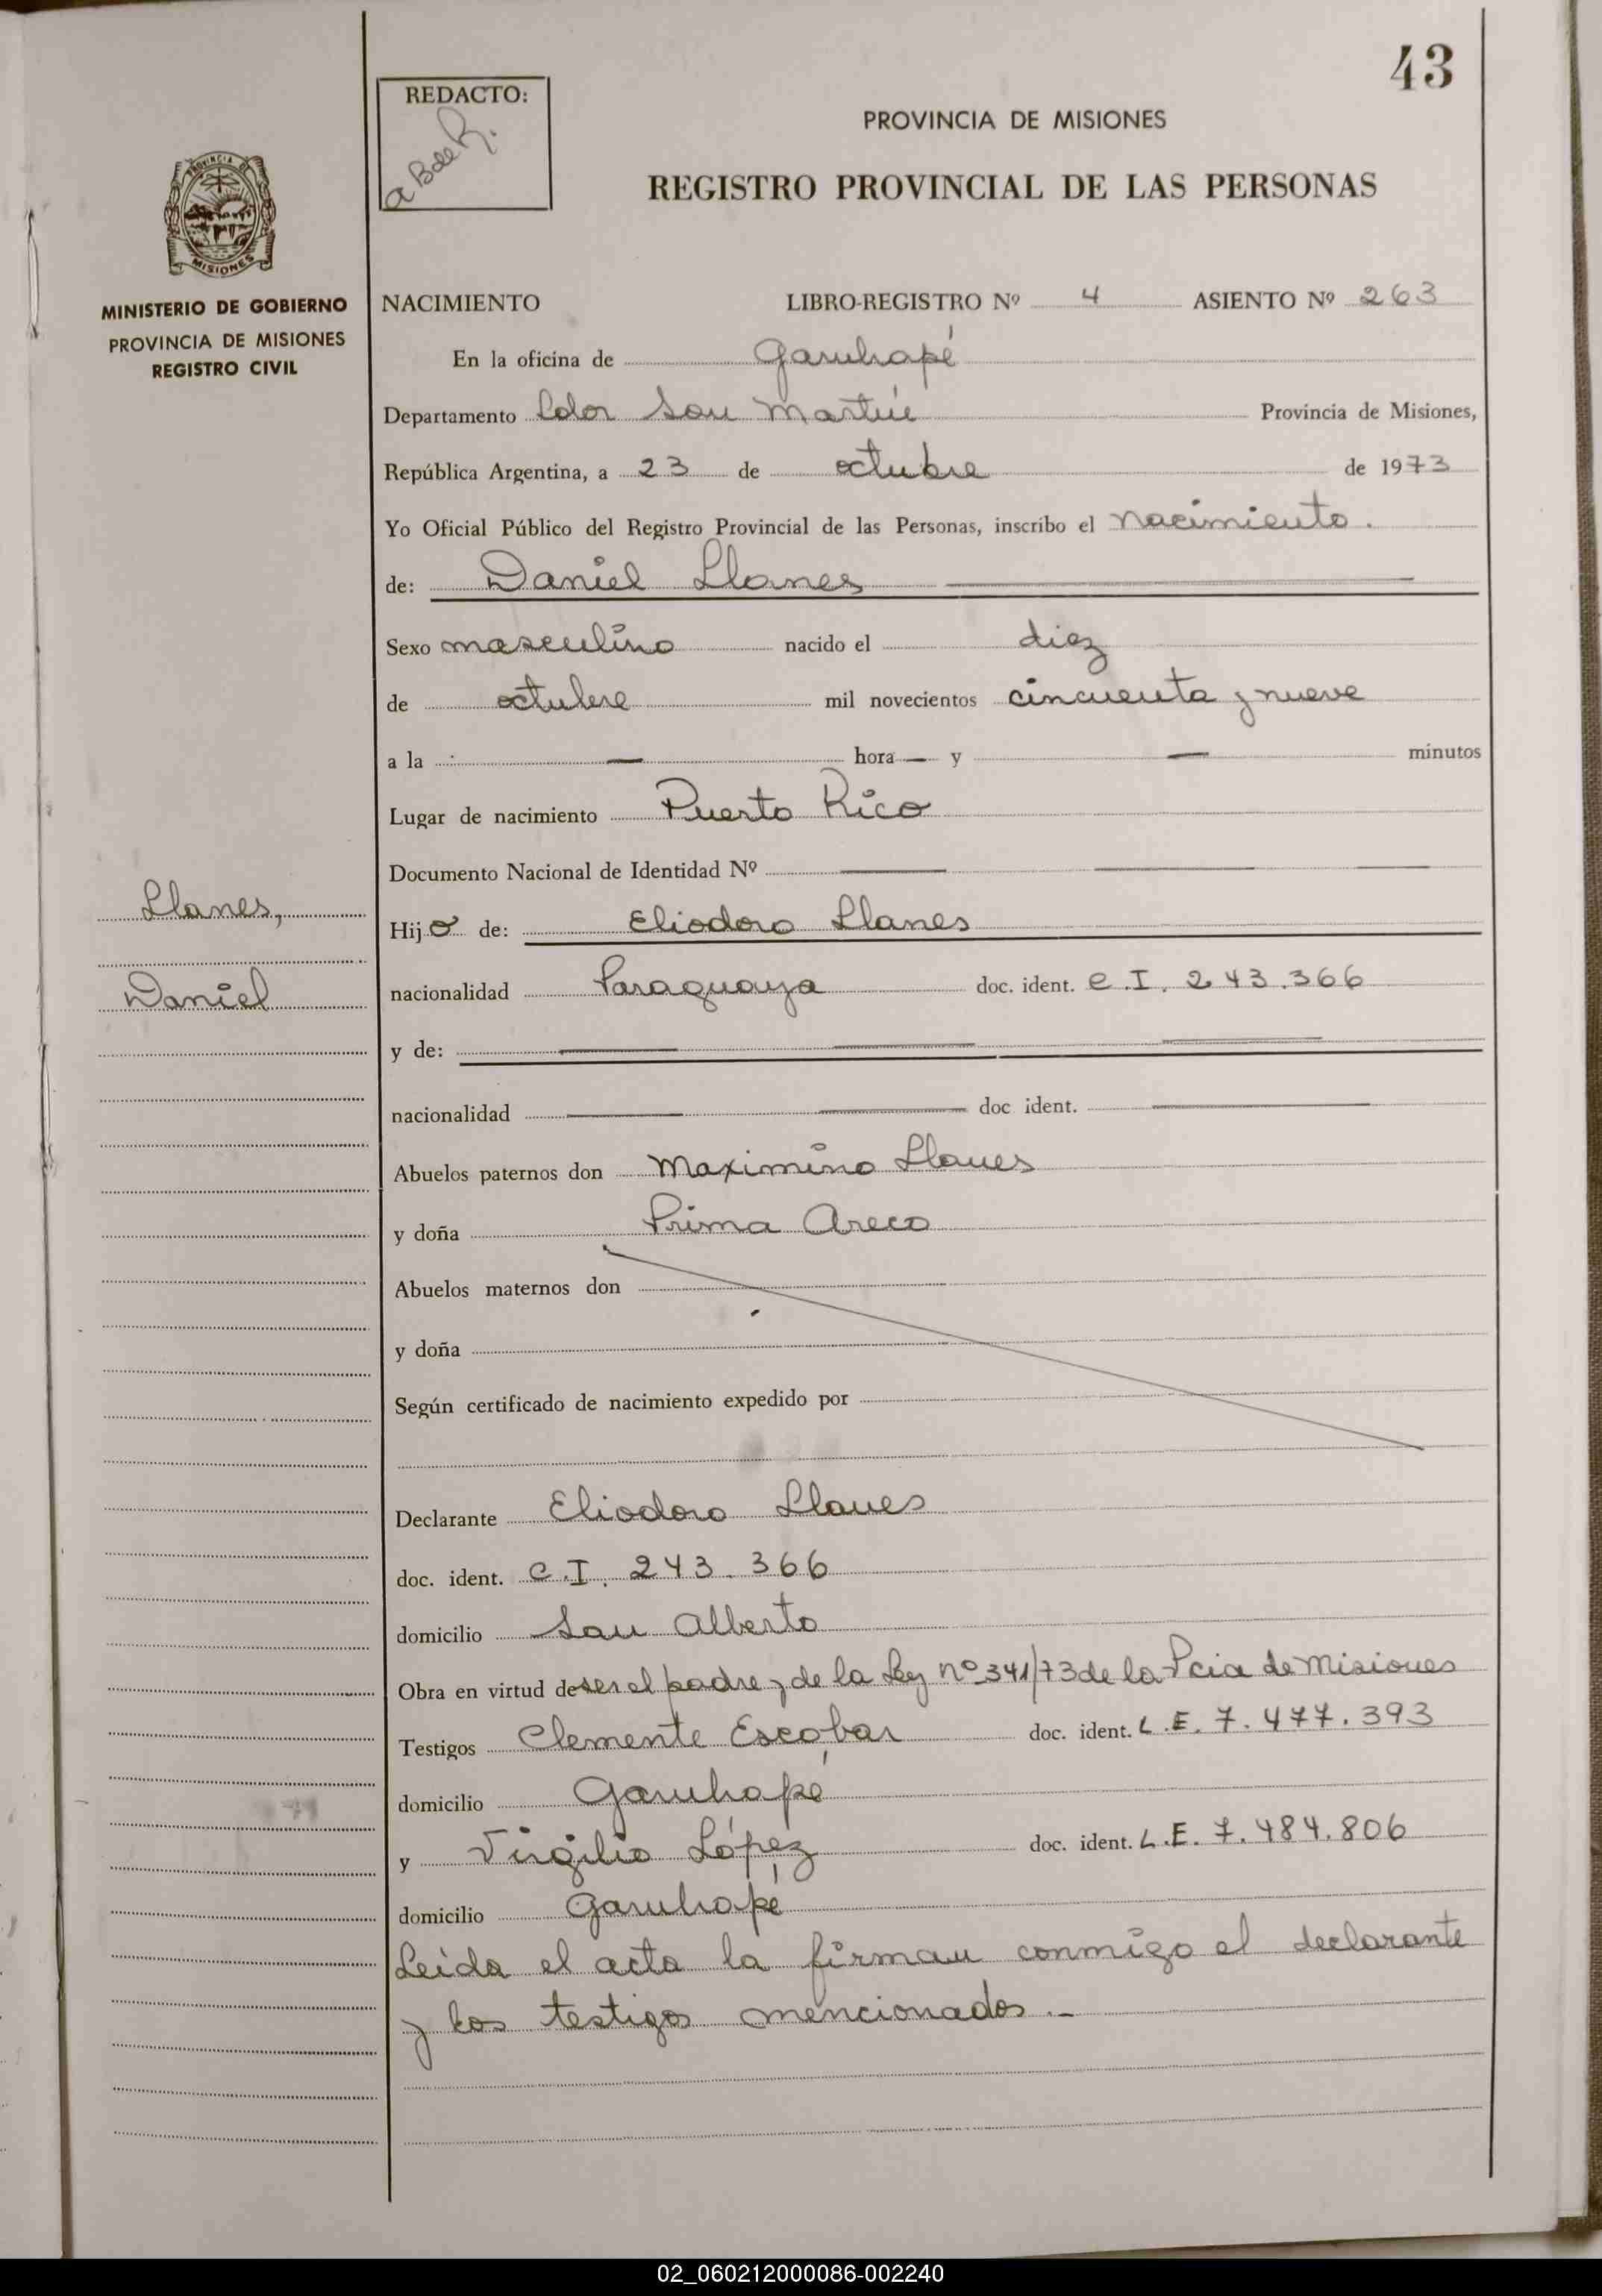 43
REDACTO:
PROVINCIA DE MISIONES
REGISTRO PROVINCIAL DE LAS PERSONAS
PROVINCIA DE
MISIONES
MINISTERIO DE GOBIERNO
PROVINCIA DE MISIONES
REGISTRO CIVIL
NACIMIENTO LIBRO-REGISTRO Nº 4 ASIENTO Nº 263
En la oficina de Garuhapé
Departamento Ldor San Martín Provincia de Misiones,
República Argentina, a 23 de octubre de 1973
Yo Oficial Público del Registro Provincial de las Personas, inscribo el nacimiento.
de: Daniel Llanes
Sexo masculino nacido el diez
de octubre mil novecientos cincuenta y nueve
a la — hora — y — minutos
Lugar de nacimiento Puerto Rico
Documento Nacional de Identidad Nº
Llanes,
Daniel
Hijo de: Eliodoro Llanes
nacionalidad Paraguaya doc. ident. C.I. 243.366
y de:
nacionalidad doc ident.
Abuelos paternos don Maximino Llanes
y doña Prima Areco
Abuelos maternos don
y doña
Según certificado de nacimiento expedido por
Declarante Eliodoro Llanes
doc. ident. C.I. 243.366
domicilio San Alberto
Obra en virtud de ser el padre y de la Ley nº 341/73 de la Pcia de Misiones
Testigos Clemente Escobar doc. ident. L.E. 7.477.393
domicilio Garuhapé
y Virgilio López doc. ident. L.E. 7.484.806
domicilio Garuhapé
Leída el acta la firman conmigo el declarante
y los testigos mencionados.-
02_060212000086-002240